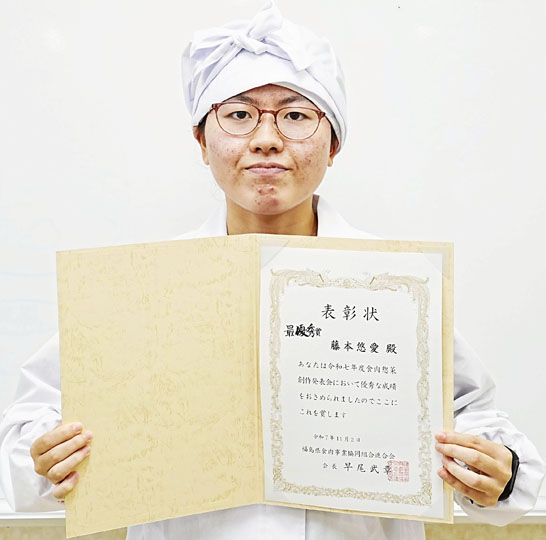 表彰状
最優秀賞
藤本悠愛 殿
あなたは令和七年度食肉惣菜
創作発表会において優秀な成績
をおさめられましたのでここに
これを賞します
令和7年11月2日
福島県食肉事業協同組合連合会
会長 早尾武章